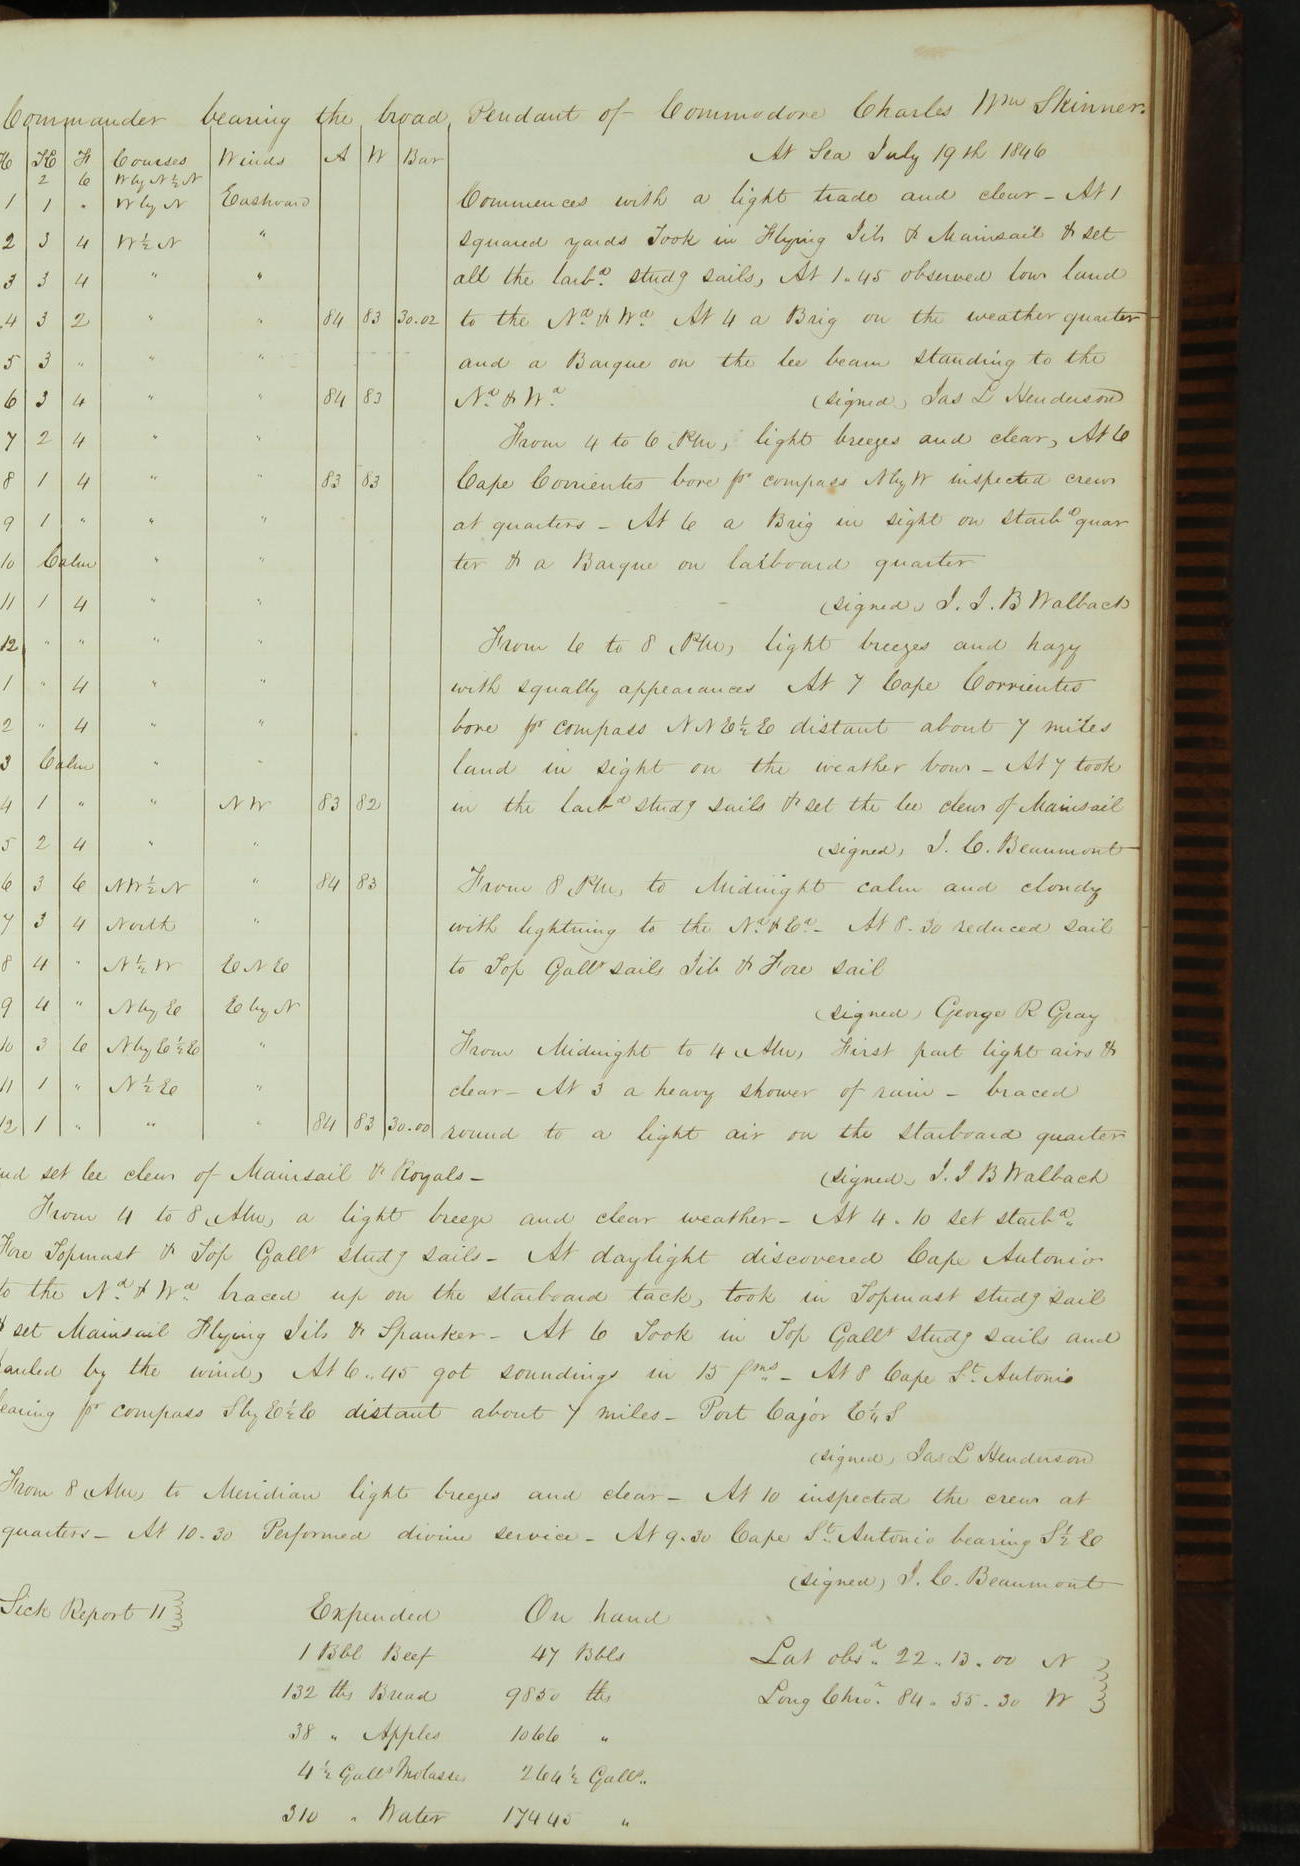 Commander bearing the broad Pendant of Commodore Charles Wm Skinner.
H K F Courses Winds A W Bar At Sea July 19th 1846
2 6 W by N ½ N
1 1 " W by N Eastward Commences with a light trade and clear - At 1
2 3 4 W ½ N " squared yards Took in Flying Jib & Mainsail & set
3 3 4 " " all the larbd. studg sails, At 1.45 observed low land
4 3 2 " " 84 83 30.02 to the Nd. & Wd. At 4 a Brig on the weather quarter
5 3 " " " and a Barque on the lee beam standing to the
6 3 4 " " 84 83 Nd. & Wd. (signed) Jas L Henderson
7 2 4 " " From 4 to 6 P.M, light breezes and clear, At 6
8 1 4 " " 83 83 Cape Corrientes bore pr compass N by W inspected crew
9 1 " " " at quarters - At 6 a Brig in sight on starbd quar
10 Calm " " ter & a Barque on larboard quarter
11 1 4 " " (signed) J. J. B Walbach
12 " " " " From 6 to 8 P.M, light breezes and hazy
1 " 4 " " with squally appearances At 7 Cape Corrientes
2 " 4 " " bore pr compass N N E ½ E distant about 7 miles
3 Calm " " land in sight on the weather bow - At 7 took
4 1 " " N W 83 82 in the larbd studg sails & set the lee clew of Mainsail
5 2 4 " " (signed) J. C. Beaumont
6 3 6 NW ½ N " 84 83 From 8 P.M, to Midnight calm and cloudy
7 3 4 North " with lightning to the Nd. & Ed. - At 8.30 reduced sail
8 4 " N ½ W E N E to Top Gallt sails Jib & Fore sail
9 4 " N by E E by N (signed) George R Gray
10 3 6 N by E ½ E " From Midnight to 4 A.M, First part light airs &
11 1 " N ½ E " clear - At 3 a heavy shower of rain - braced
12 1 " " " 84 83 30.00 round to a light air on the starboard quarter
and set lee clew of Mainsail & Royals - (signed) J. J B Walbach
From 4 to 8 A.M, a light breeze and clear weather - At 4.10 set starbd.
Fore Topmast & Top Gallt studg sails - At daylight discovered Cape Antonio
to the Nd. & Wd. braced up on the starboard tack, took in Topmast studg sail
& set Mainsail Flying Jib & Spanker - At 6 Took in Top Gallt studg sails and
hauled by the wind, At 6..45 got soundings in 15 fms - At 8 Cape St. Antonio
bearing pr compass S by E ½ E distant about 7 miles - Port Cajor E ¼ S
(signed) Jas L Henderson
From 8 A.M, to Meridian light breezes and clear - At 10 inspected the crew at
quarters - At 10.30 Performed divine service - At 9.30 Cape St. Antonio bearing S ½ E
(signed) J. C. Beaumont
Sick Report 11
Expended On hand
1 Bbl Beef 47 Bbls
132 lbs Bread 9850 lbs
38 " Apples 1066 "
4 ½ Galls Molasses 264 ½ Galls.
310 " Water 17445 "
Lat obsd. 22..13.00 N
Long Chro. 84.55.30 W